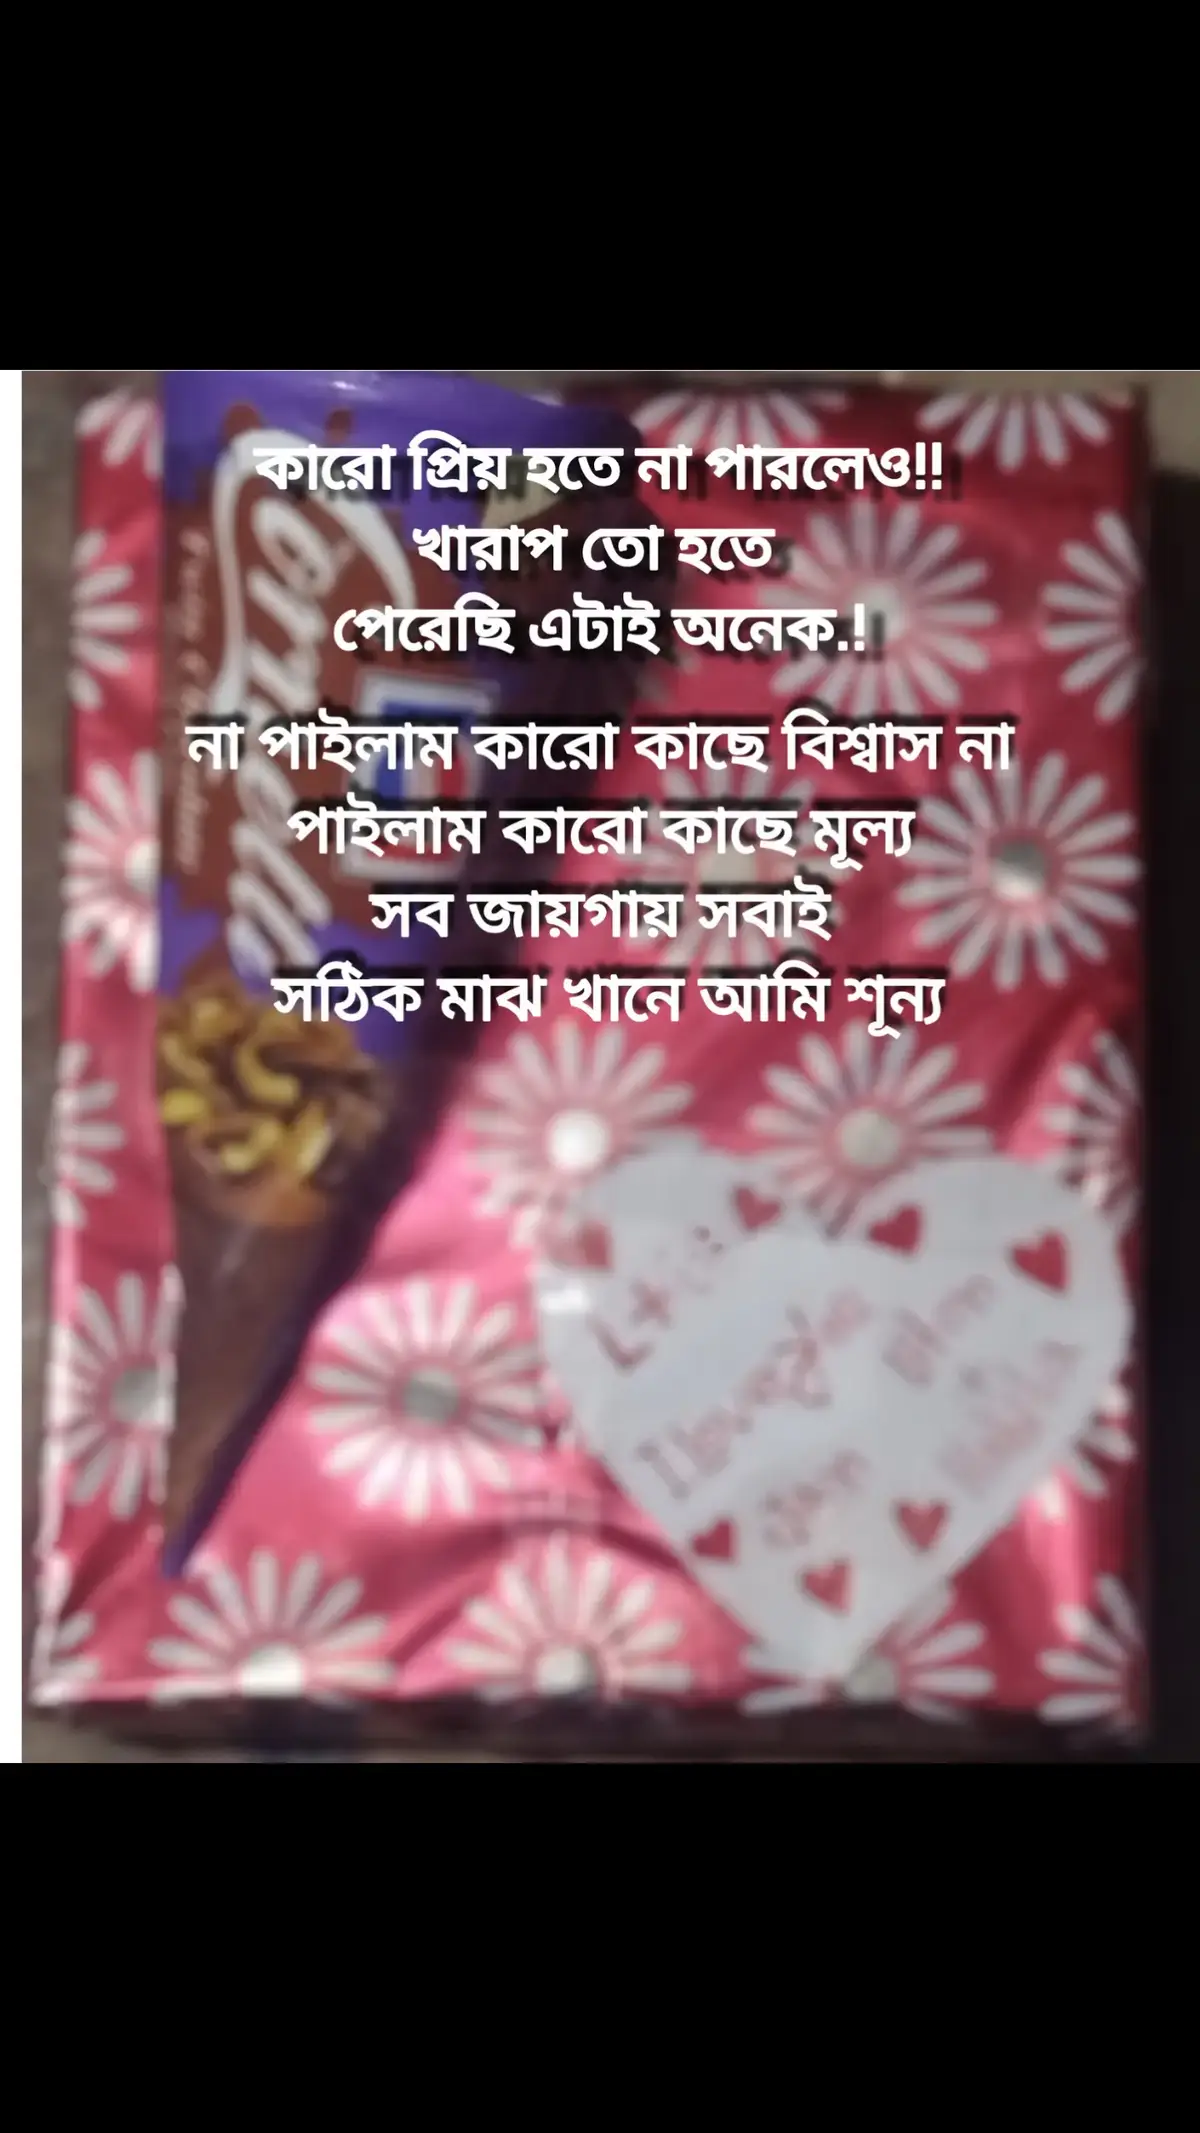 কারো প্রিয় হতে না পারলেও!!
খারাপ তো হতে
পেরেছি এটাই অনেক.!
না পাইলাম কারো কাছে বিশ্বাস না
পাইলাম কারো কাছে মূল্য
সব জায়গায় সবাই
সঠিক মাঝ খানে আমি শূন্য